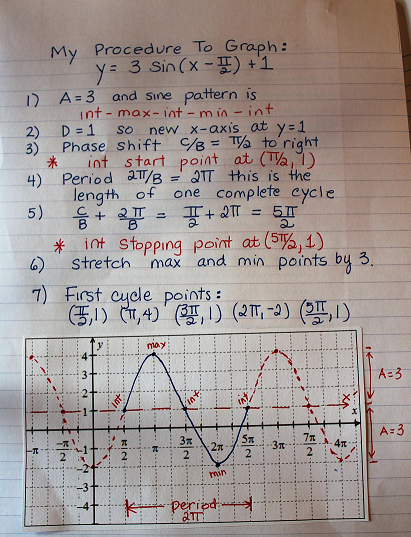 My Procedure To Graph:
y = 3 sin(x - π/2) + 1
1) A=3 and sine pattern is
int - max - int - min - int
2) D=1 so new x-axis at y=1
3) Phase shift C/B = π/2 to right
* int start point at (π/2, 1)
4) Period 2π/B = 2π this is the
length of one complete cycle
5) C/B + 2π/B = π/2 + 2π = 5π/2
* int stopping point at (5π/2, 1)
6) Stretch max and min points by 3.
7) First cycle points:
(π/2, 1) (π, 4) (3π/2, 1) (2π, -2) (5π/2, 1)
y
max
4
3
2
1
int int int
x'
x
A=3
-π -π/2 π/2 π 3π/2 2π 5π/2 3π 7π/2 4π
-1
-2
-3
-4
min
A=3
period
2π